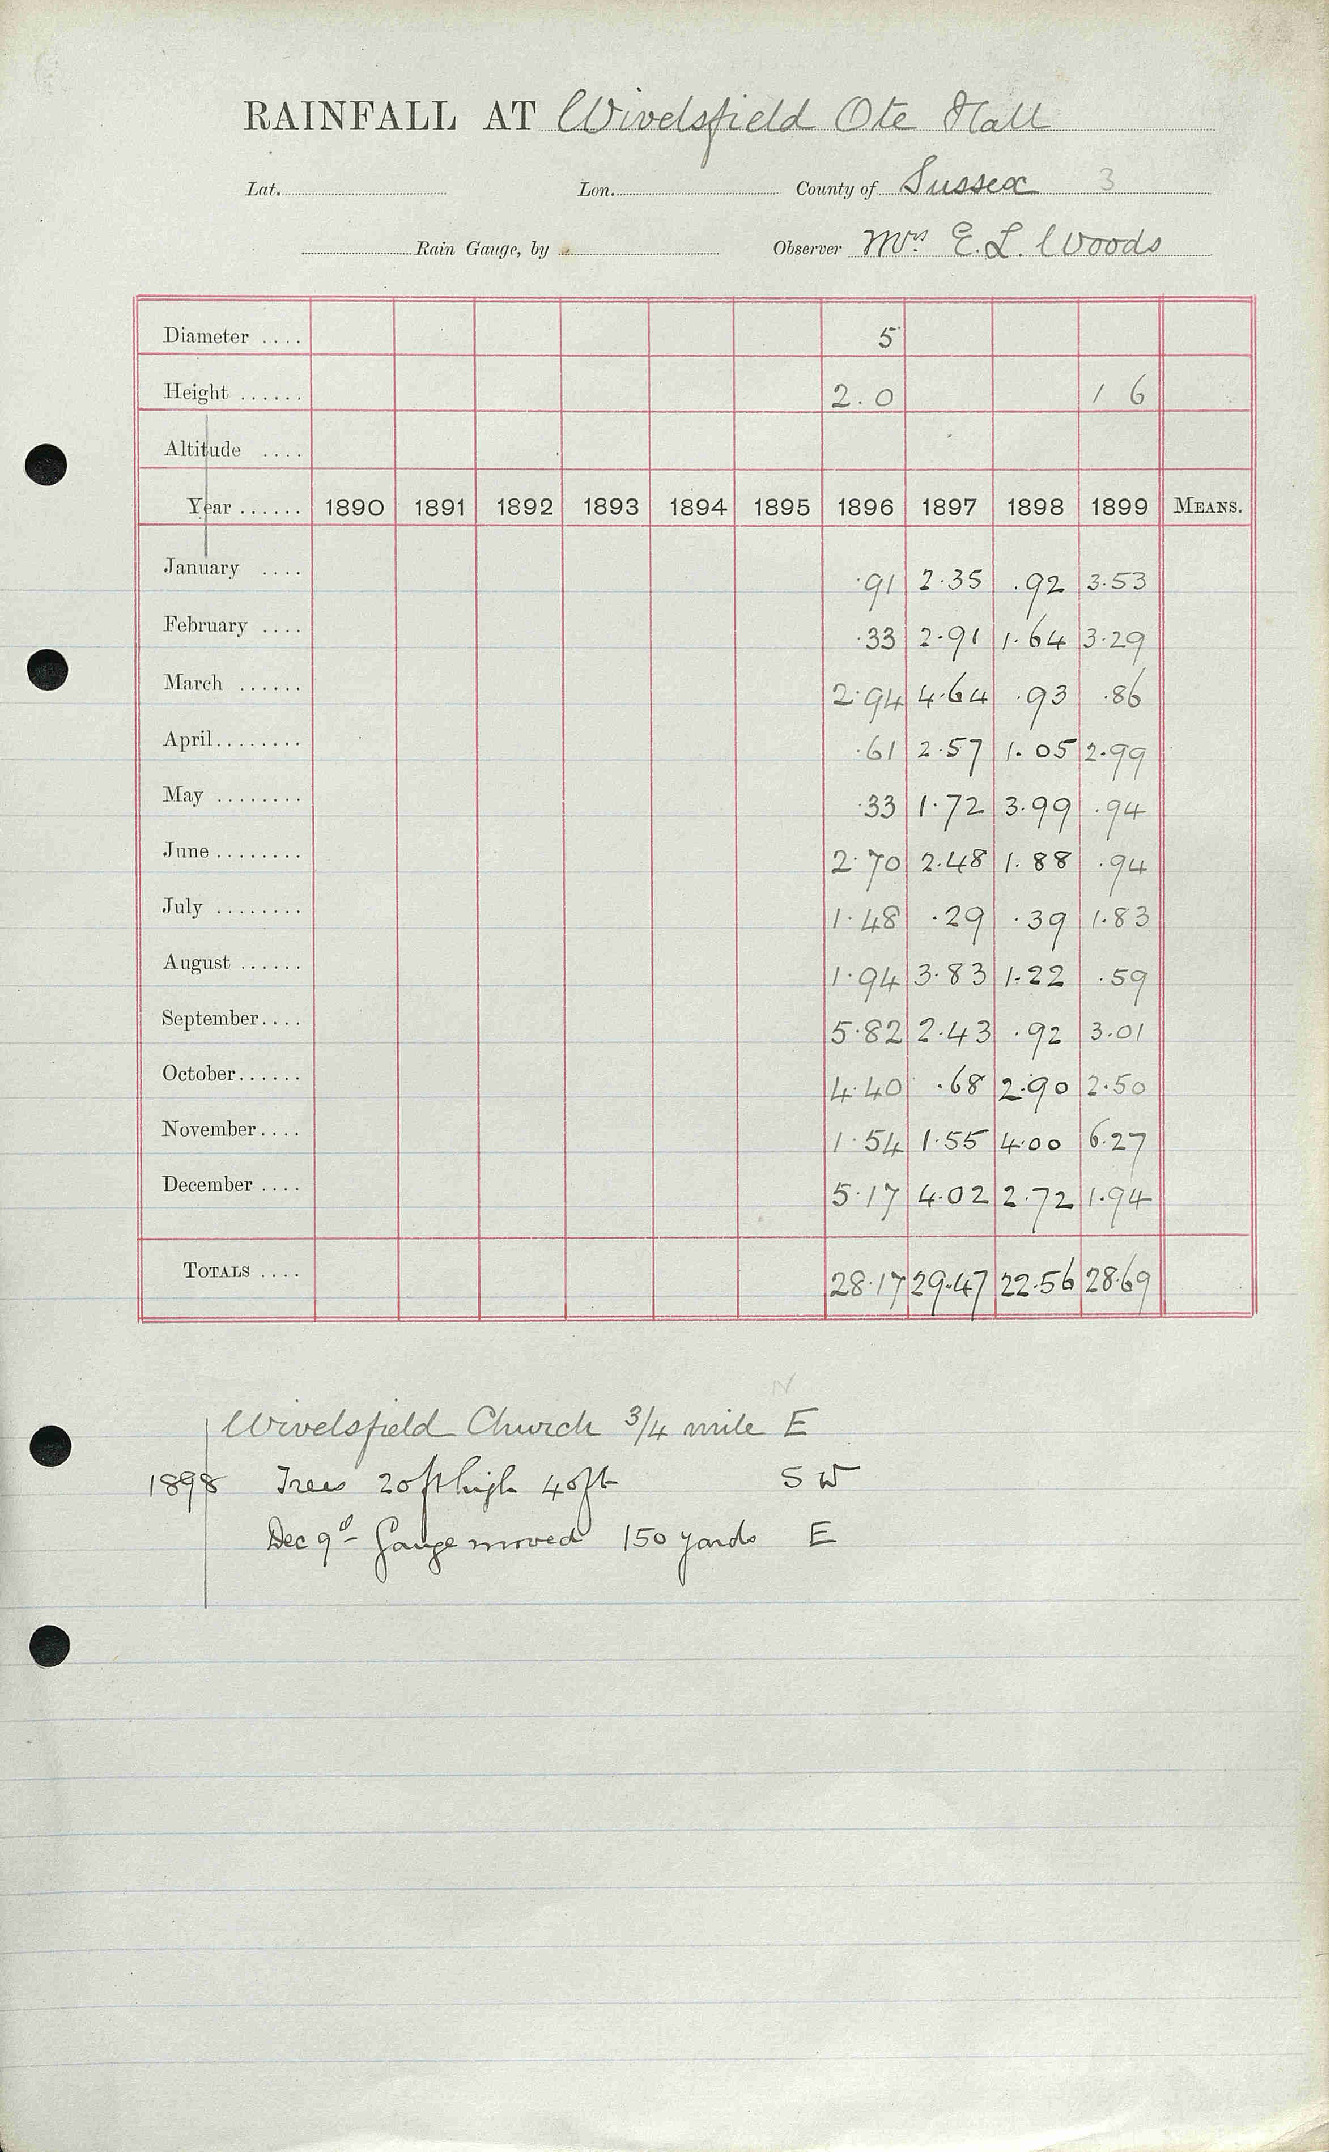 RAINFALL AT Wivelsfield Ote Hall
Lat. Lon. County of Sussex 3
Rain Gauge, by Observer Mrs. E. L. Woods
Diameter .... 5
Height ...... 2.0 1 6
Altitude ....
Year ...... 1890 1891 1892 1893 1894 1895 1896 1897 1898 1899 MEANS.
January .... .91 2.35 .92 3.53
February .... .33 2.91 1.64 3.29
March ...... 2.94 4.64 .93 .86
April........ .61 2.57 1.05 2.99
May ........ .33 1.72 3.99 .94
June ........ 2.70 2.48 1.88 .94
July ........ 1.48 .29 .39 1.83
August ...... 1.94 3.83 1.22 .59
September.... 5.82 2.43 .92 3.01
October...... 4.40 .68 2.90 2.50
November.... 1.54 1.55 4.00 6.27
December .... 5.17 4.02 2.72 1.94
TOTALS .... 28.17 29.47 22.56 28.69
N
Wivelsfield Church 3/4 mile E
1898 Trees 20ft high 40ft SW
Dec 9th Gauge moved 150 yards E